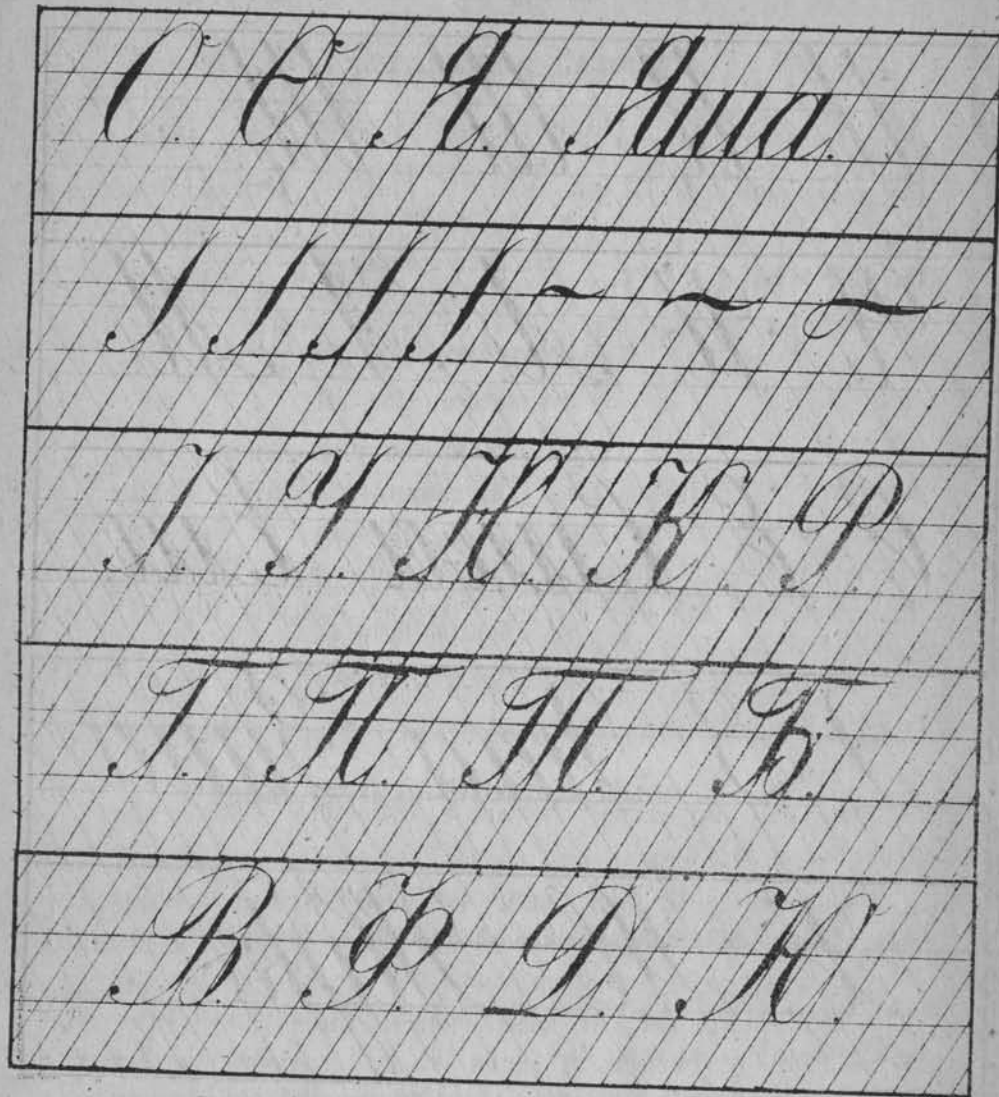 С. Е. Я. Яша.
І. У. Н. К. Р.
Г. П. Т. Б.
В. Ф. Д. Ю.